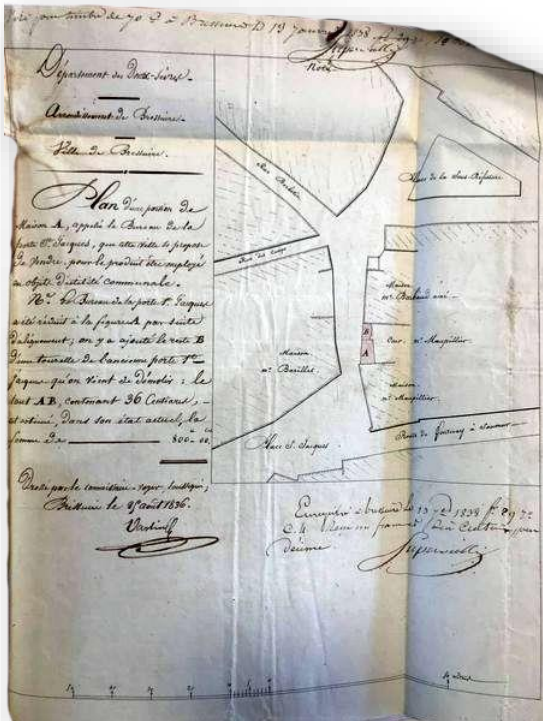 timbre de 70 c à Bressuire le 13 janvier 1838
Département des Deux-Sèvres.
Arrondissement de Bressuire.
Ville de Bressuire.
Plan d'une portion de
Maison A, appelé le Bureau de la
porte St. Jacques, que cette ville se propose
de vendre, pour le produit être employé
en objets d'utilité communale.
Le Bureau de la porte St. Jacques
a été réduit à la figure A par suite
d'alignement; on y a ajouté le reste B
d'une tourelle de l'ancienne porte St.
Jacques qu'on vient de démolir; le
tout AB, contenant 36 Centiares,
est estimé, dans son état actuel, la
somme de 800-00
Dressé par le commissaire voyer soussigné;
Bressuire le 25 août 1836.
Nord
Place de la Sous-Préfecture
Maison
Mr. Barbaud ainé
B
A
Cour Mr. Maupillier
Maison
Mr. Maupillier
Maison
Mr. Barillet
Place St. Jacques
Route de Fontenay à Saumur
Enregistré à Bressuire le 13 1838 f. 89
c. 4 Reçu un franc dix Centimes pour
décime